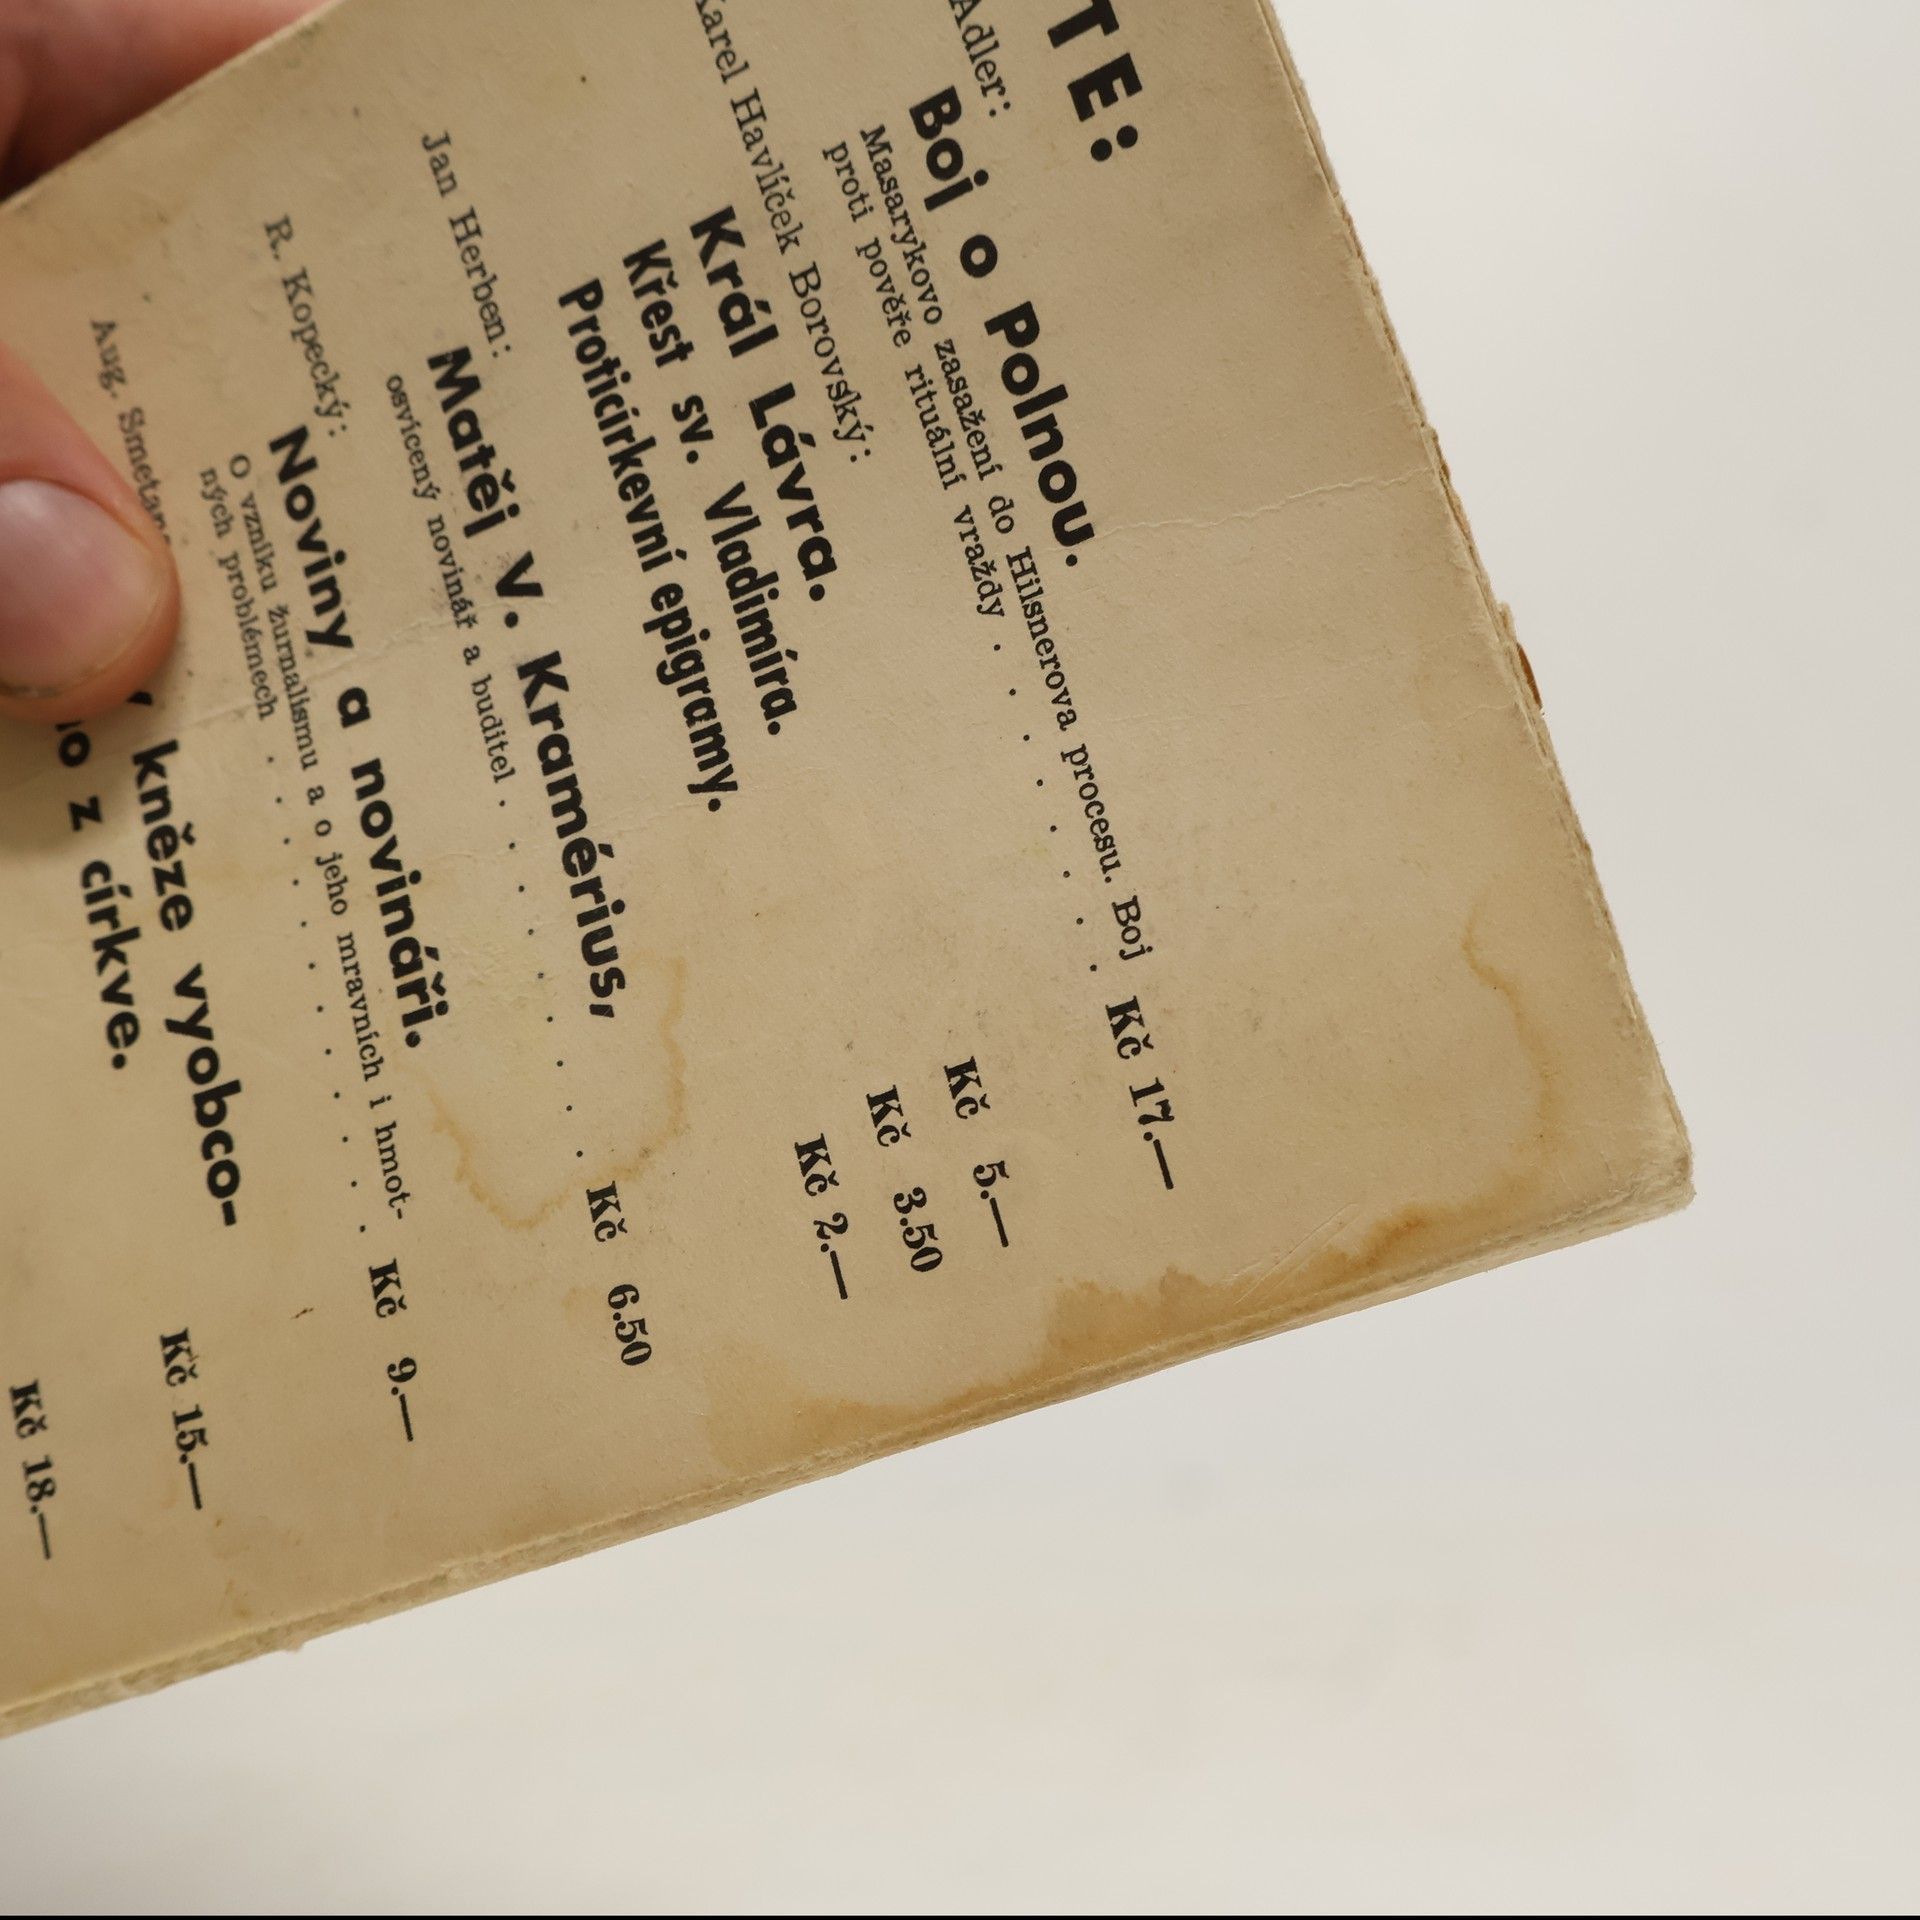 TE:
Adler:
Boj o Polnou.
Masarykovo zasažení do Hilsnerova procesu. Boj
proti pověře rituální vraždy . . . . . . . . Kč 17.—
Karel Havlíček Borovský:
Král Lávra. Kč 5.—
Křest sv. Vladimíra. Kč 3.50
Proticírkevní epigramy. Kč 2.—
Jan Herben:
Matěj V. Kramérius,
osvícený novinář a buditel . . . . . . . . . Kč 6.50
R. Kopecký:
Noviny a novináři.
O vzniku žurnalismu a o jeho mravních i hmot-
ných problémech . . . . . . . . . . . . Kč 9.—
Aug. Smetana
kněze vyobco-
z církve. Kč 15.—
Kč 18.—